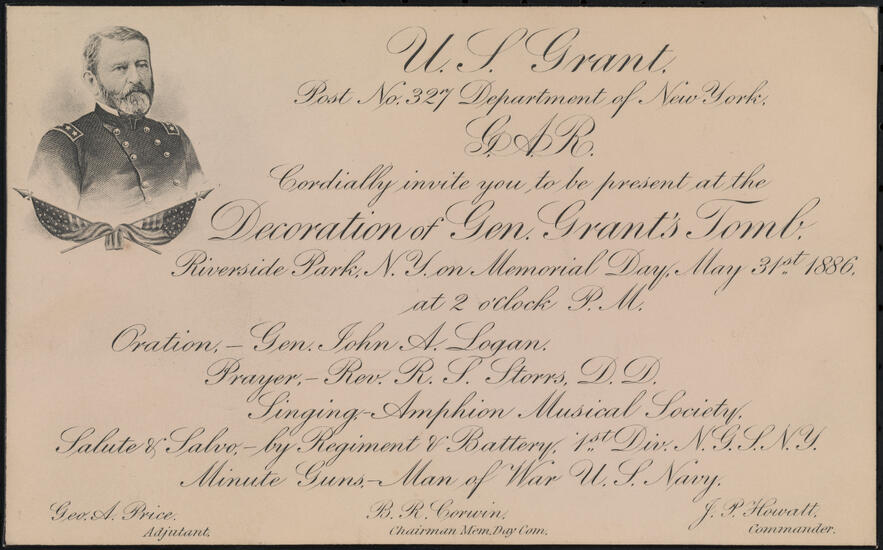 U. S. Grant.
Post No. 327 Department of New York.
G.A.R.
Cordially invite you to be present at the
Decoration of Gen. Grant's Tomb.
Riverside Park, N.Y. on Memorial Day, May 31st 1886.
at 2 o'clock P.M.
Oration,- Gen. John A. Logan.
Prayer,- Rev. R. S. Storrs, D.D.
Singing,- Amphion Musical Society.
Salute & Salvo,- by Regiment & Battery, 1st Div. N.G.S.N.Y.
Minute Guns,- Man of War U.S. Navy.
Geo. A. Price. B. R. Corwin. J. P. Howatt.
Adjutant. Chairman Mem. Day Com. Commander.